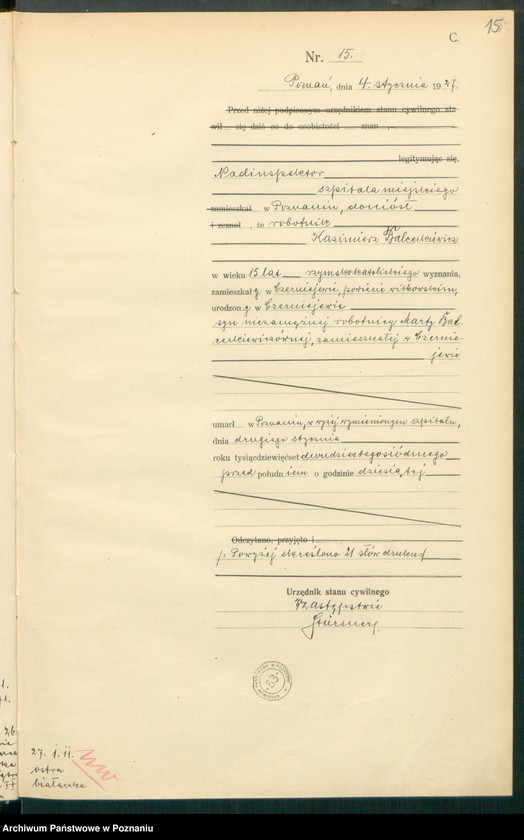 15.
C.
Nr. 15.
Poznań, dnia 4. stycznia 1927.
Przed niżej podpisanym urzędnikiem stanu cywilnego sta-
wił się dziś co do osobistości znan ,
legitymując się,
Nadinspektor
szpitala miejskiego
zamieszkał w Poznaniu, doniósł
i zeznał , że robotnik
Kazimierz Balcerkiewicz
w wieku 15 lat rzymskokatolickiego wyznania,
zamieszkały w Czerniejewie, powiecie witkowskim,
urodzony w Czerniejewie
syn niezamężnej robotnicy Marty Bal-
cerkiewiczównej, zamieszkałej w Czernie-
jewie
umarł w Poznaniu, w wyżej wymienionym szpitalu,
dnia drugiego stycznia
roku tysiącdziewięćset dwudziestegosiódmego
przed południem o godzinie dziesiątej
Odczytano, przyjęto i
Powyżej skreślono 21 słów druku
Urzędnik stanu cywilnego
W zastępstwie
Stürmer
53
27. 1. 11.
ostra
białaczka
Archiwum Państwowe w Poznaniu